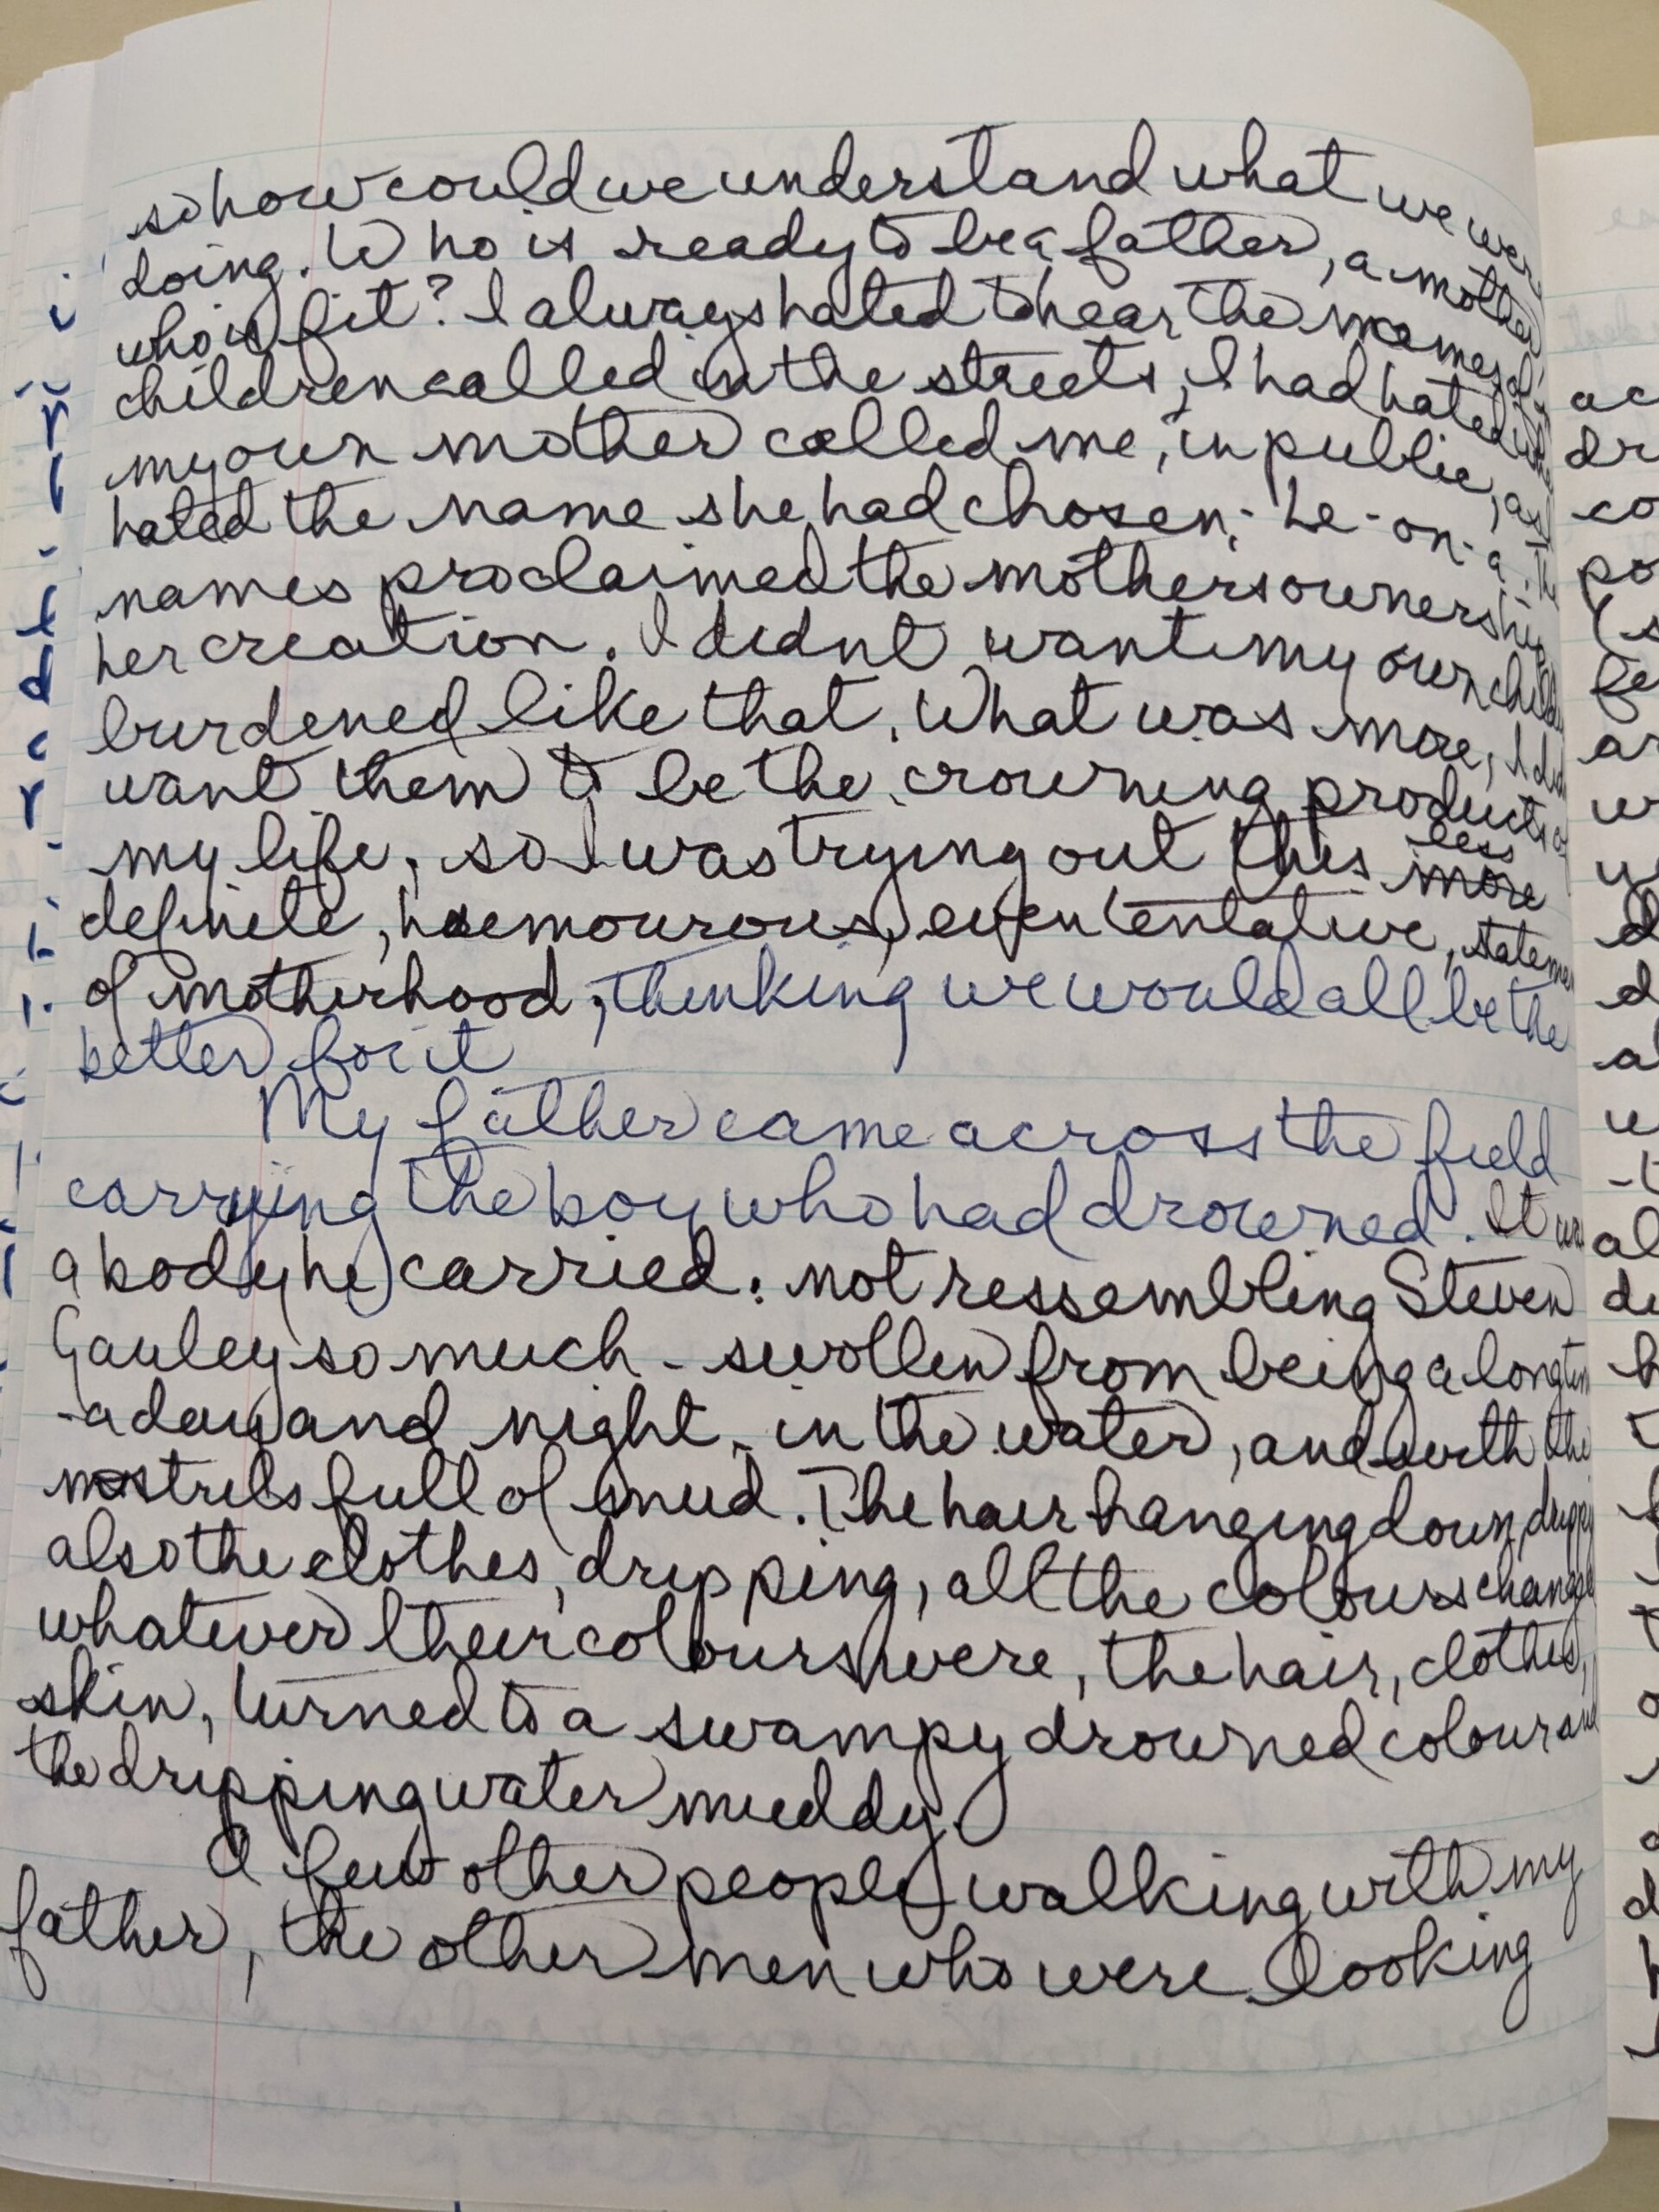 so how could we understand what we were
doing. Who is ready to be a father, a mother
who is fit? I always hated to hear the names of
children called in the streets, I had hated
my own mother called me, in public, as
hated the name she had chosen; Le-on-a. The
names proclaimed the mothers ownership
her creation. I didnt want my own child
burdened like that. What was more, I did
want them to be the crowning products of
my life, so I was trying out this less more
definite, haemourous, even tentative, stateme
of motherhood, thinking we would all be the
better for it
My father came across the field
carrying the boy who had drowned. It was
a body he carried: not ressembling Steven
Gauley so much - swollen from being a long tim
- a day and night, in the water, and with the
nostrils full of mud. The hair hanging down, dripping
also the clothes, dripping, all the colours changed
whatever their colours were, the hair, clothes,
skin, turned to a swampy drowned colour and
the dripping water muddy.
A few other people walking with my
father, the other men who were looking